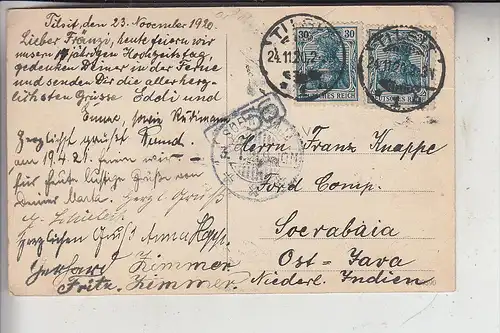 Tilsit, den 23. November 1920.
Lieber Franzi, heute feiern wir
unsern 17 jährigen Hochzeitstag
gedenken Deiner in der Ferne
und senden Dir die allerherz-
lichsten Grüsse Edoli und
Emma, sowie
Herzlichst grüßt
am 19.4.21. feiern wir
für heute lustige Grüße von
Deiner Marta. Herzl Gruß
Herzlichen Gruß Anna
Gerhard Zimmer
Fritz. Zimmer.
TILSIT
24.11.20.
30 30
DEUTSCHES REICH
TILSIT
24.11.20.
DEUTSCHES REICH
50
Herrn Franz Knappe
Ford Comp.
Soerabaia
Ost = Java
Niederl. Indien